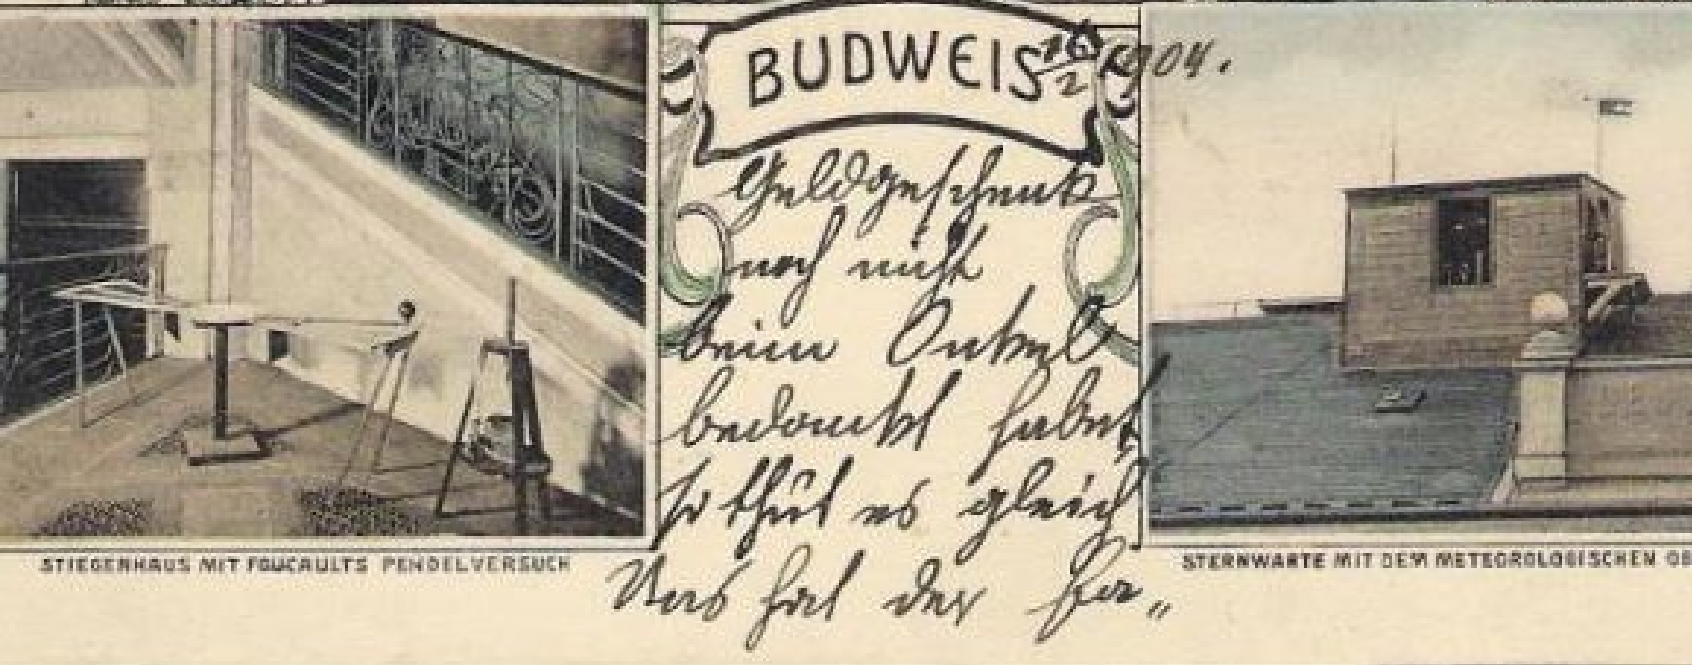 BUDWEIS 16/2 1904.
Geldgeschenk
noch nicht
beim Onkel
bedankt habet
so thut es gleich
Uns hat der Ha„
STIEGENHAUS MIT FOUCAULTS PENDELVERSUCH
STERNWARTE MIT DEM METEOROLOGISCHEN OB